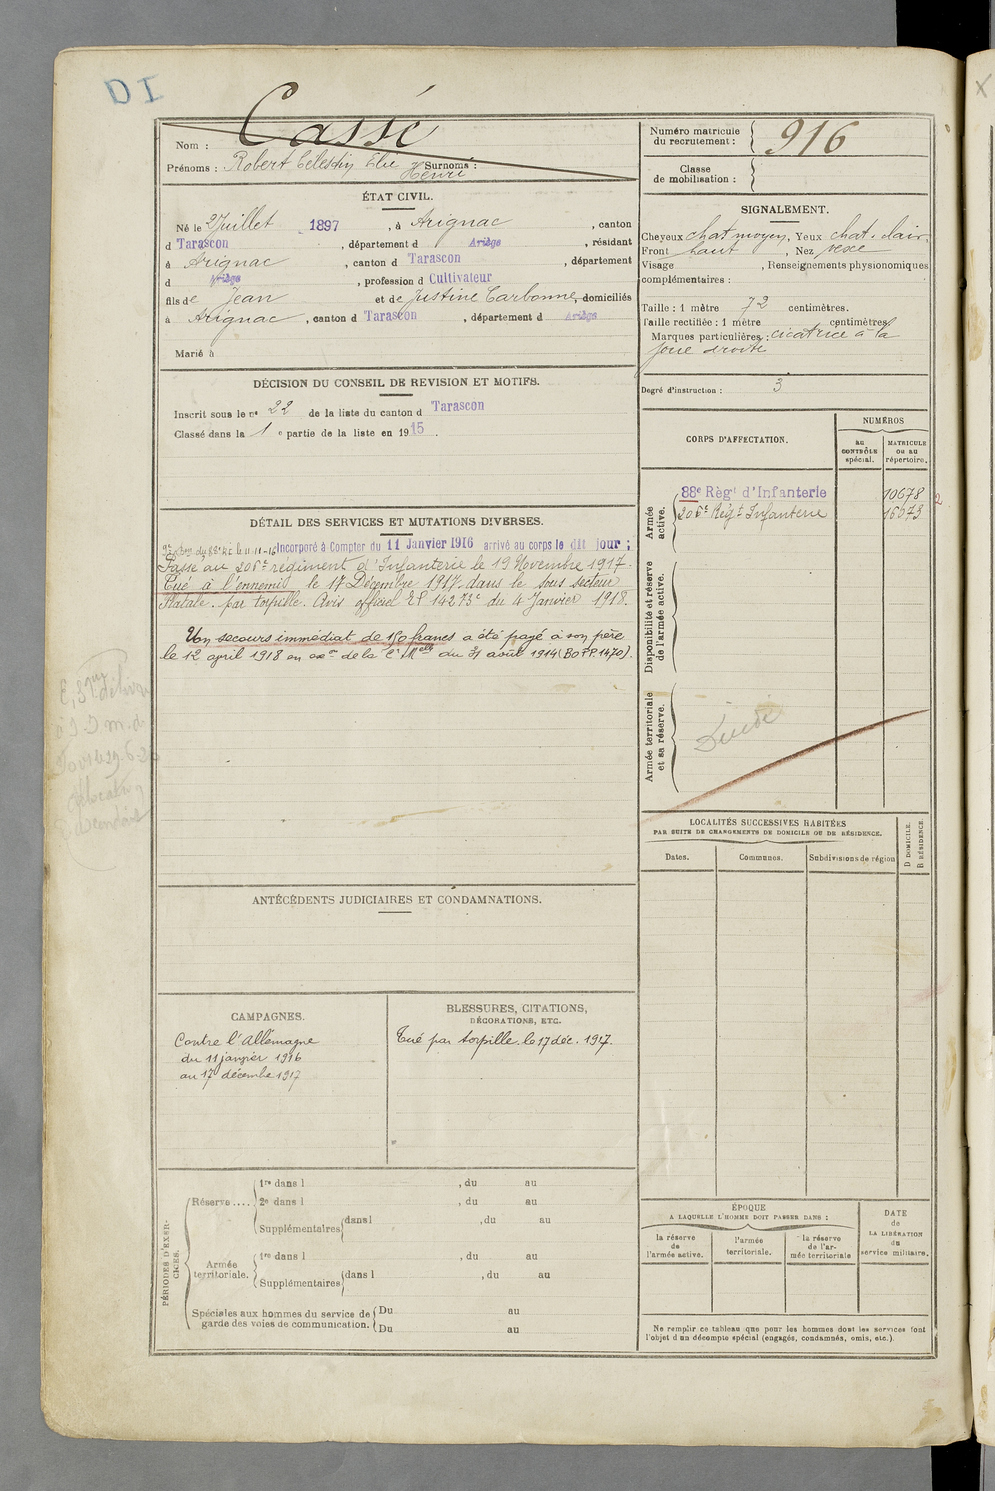 DI
Nom : Cassé
Prénoms : Robert Celestin Elie Henri Surnoms :
Numéro matricule du recrutement : 916
Classe de mobilisation :
ÉTAT CIVIL.
Né le 2 Juillet 1897, à Arignac, canton
d Tarascon, département d Ariège, résidant
à Arignac, canton d Tarascon, département
d Ariège, profession d Cultivateur
fils de Jean et de Justine Carbonne, domiciliés
à Arignac, canton d Tarascon, département d Ariège
Marié à
SIGNALEMENT.
Cheveux chat moyen, Yeux chat. clair,
Front haut, Nez vexe
Visage , Renseignements physionomiques
complémentaires :
Taille : 1 mètre 72 centimètres.
Taille rectifiée : 1 mètre centimètres
Marques particulières : cicatrice à la
joue droite
Degré d'instruction : 3
DÉCISION DU CONSEIL DE REVISION ET MOTIFS.
Inscrit sous le n° 22 de la liste du canton d Tarascon
Classé dans la 1e partie de la liste en 1915.
CORPS D'AFFECTATION.
NUMÉROS
au CONTRÔLE spécial.
MATRICULE ou au répertoire.
Armée active.
88e Règt d'Infanterie 10678
206e Régt Infanterie 16073
2
Disponibilité et réserve de l'armée active.
Armée territoriale et sa réserve.
DÉTAIL DES SERVICES ET MUTATIONS DIVERSES.
Incorporé à Compter du 11 Janvier 1916 arrivé au corps le dit jour ;
Passé au 206e régiment d'Infanterie le 19 Novembre 1917.
Tué à l'ennemi le 17 Décembre 1917 dans le sous secteur
Statale. par torpille. Avis officiel EP 14273e du 4 Janvier 1918.
Un secours immédiat de 150 francs a été payé à son père
le 12 april 1918 en exon de la Ce Melle du 31 août 1914 (BO P.P. 1470).
LOCALITÉS SUCCESSIVES HABITÉES
PAR SUITE DE CHANGEMENTS DE DOMICILE OU DE RÉSIDENCE.
Dates. Communes. Subdivisions de région
D DOMICILE. R RÉSIDENCE.
ANTÉCÉDENTS JUDICIAIRES ET CONDAMNATIONS.
CAMPAGNES.
Contre l'Allemagne
du 11 janvier 1916
au 17 décembe 1917
BLESSURES, CITATIONS,
DÉCORATIONS, ETC.
Tué par torpille. le 17 déc. 1917.
PÉRIODES D'EXERCICES.
Réserve ....
1re dans l , du au
2e dans l , du au
Supplémentaires dans l , du au
Armée territoriale.
1re dans l , du au
Supplémentaires dans l , du au
Spéciales aux hommes du service de garde des voies de communication.
Du au
Du au
ÉPOQUE
A LAQUELLE L'HOMME DOIT PASSER DANS :
la réserve de l'armée active.
l'armée territoriale.
la réserve de l'armée territoriale
DATE de LA LIBÉRATION du service militaire.
Ne remplir ce tableau que pour les hommes dont les services font
l'objet d'un décompte spécial (engagés, condamnés, omis, etc.).